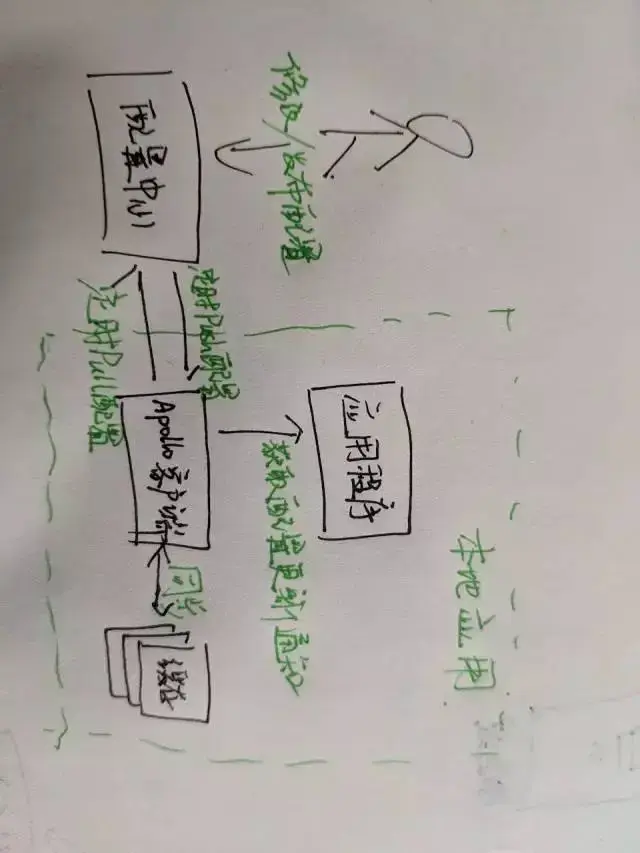 修改/发布配置
配置中心
定时Pull配置
实时Push配置
Apollo客户端
应用程序
获取配置更新通知
同步
缓存
本地应用